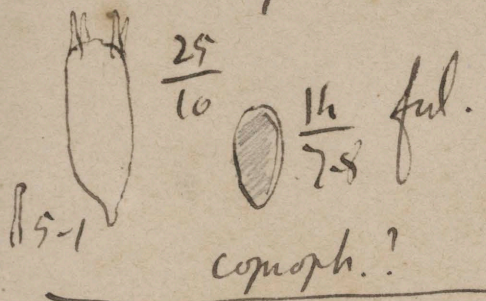 25
10
14
7-8 ful.
5-1
coproph.?